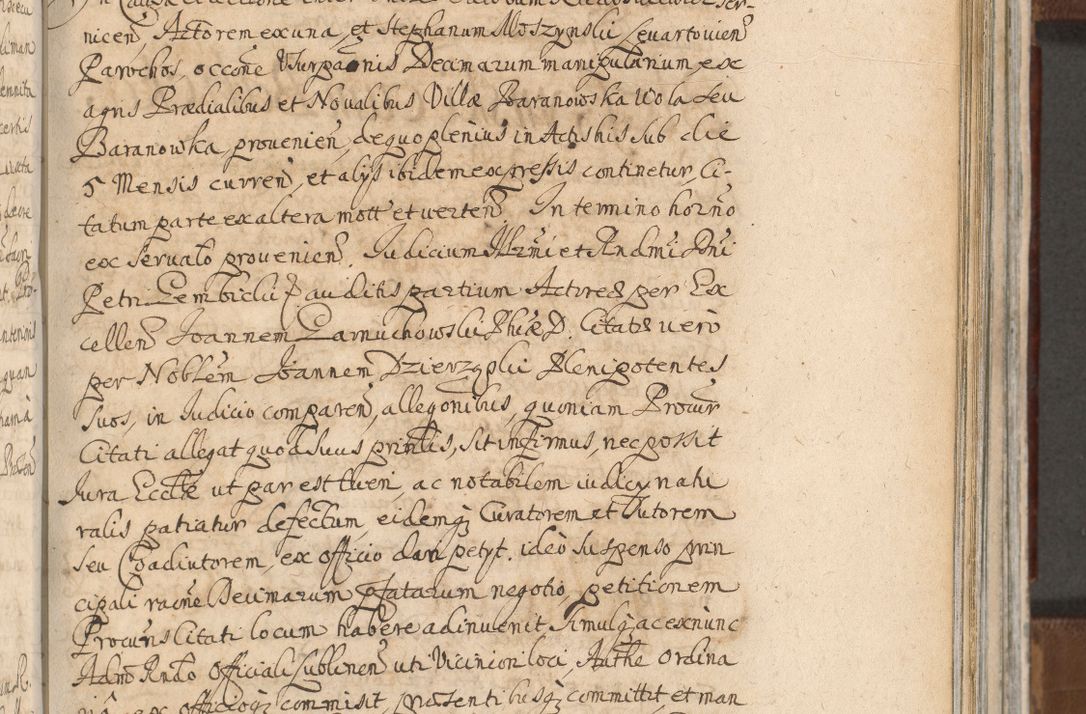 nicen, Actorem ex una, et Stephanum Moszynski Levartovien
Parochos, occone Usurpaonis Decimarum manipularium, ex
agris Prædialibus et Novalibus Villæ Baranowska Wola seu
Baranowska, provenien, de quo plenius in Actis his sub die
5 Mensis curren, et alijs ibidem expressis continetur, Ci-
tatum parte ex altera mott et verten. In termino horno
ex servato provenien. Judicium Illrmi et Rndmi Dni
Petri Gembicki P auditis partium Actores per Ex
cellen Joannem Carnuchowski Phiæ D. Citati vero
per Noblem Joannem Dzierzgki Plenipotentes
suos, in Judicio comparen, allegonibus, quoniam Procur
Citati allegat quod suus prinlis, sit infirmus, nec possit
Jura Eccliæ ut par est tueri, ac notabilem iudicij natu
ralis patiatur defectum, eidemq Curatorem et Tutorem
seu Coadiutorem, ex officio dari petyt. ideo suspenso prin
cipali raone Decimarum pfatarum negotio, petitionem
Procuris Citati locum habere adinvenit. Simulq ac ex nunc
Admo Rndo Officiali Lublinen uti Viciniori loci, Authe ordina
ria ex officioq commisit, præsentibusq committit et man